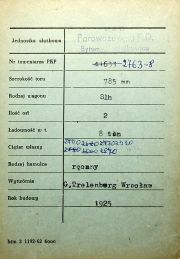 Jednostka służbowa Parowozownia
Nr inwentarza PKP 2763-8
Szerokość toru 785 mm
Rodzaj wagonu Slh
Ilość osi 2
Ładowność w t 8 ton
Ciężar własny
Rodzaj hamulca ręczny
Wytwórnia G.Trelenberg Wrocław
Rok budowy 1925